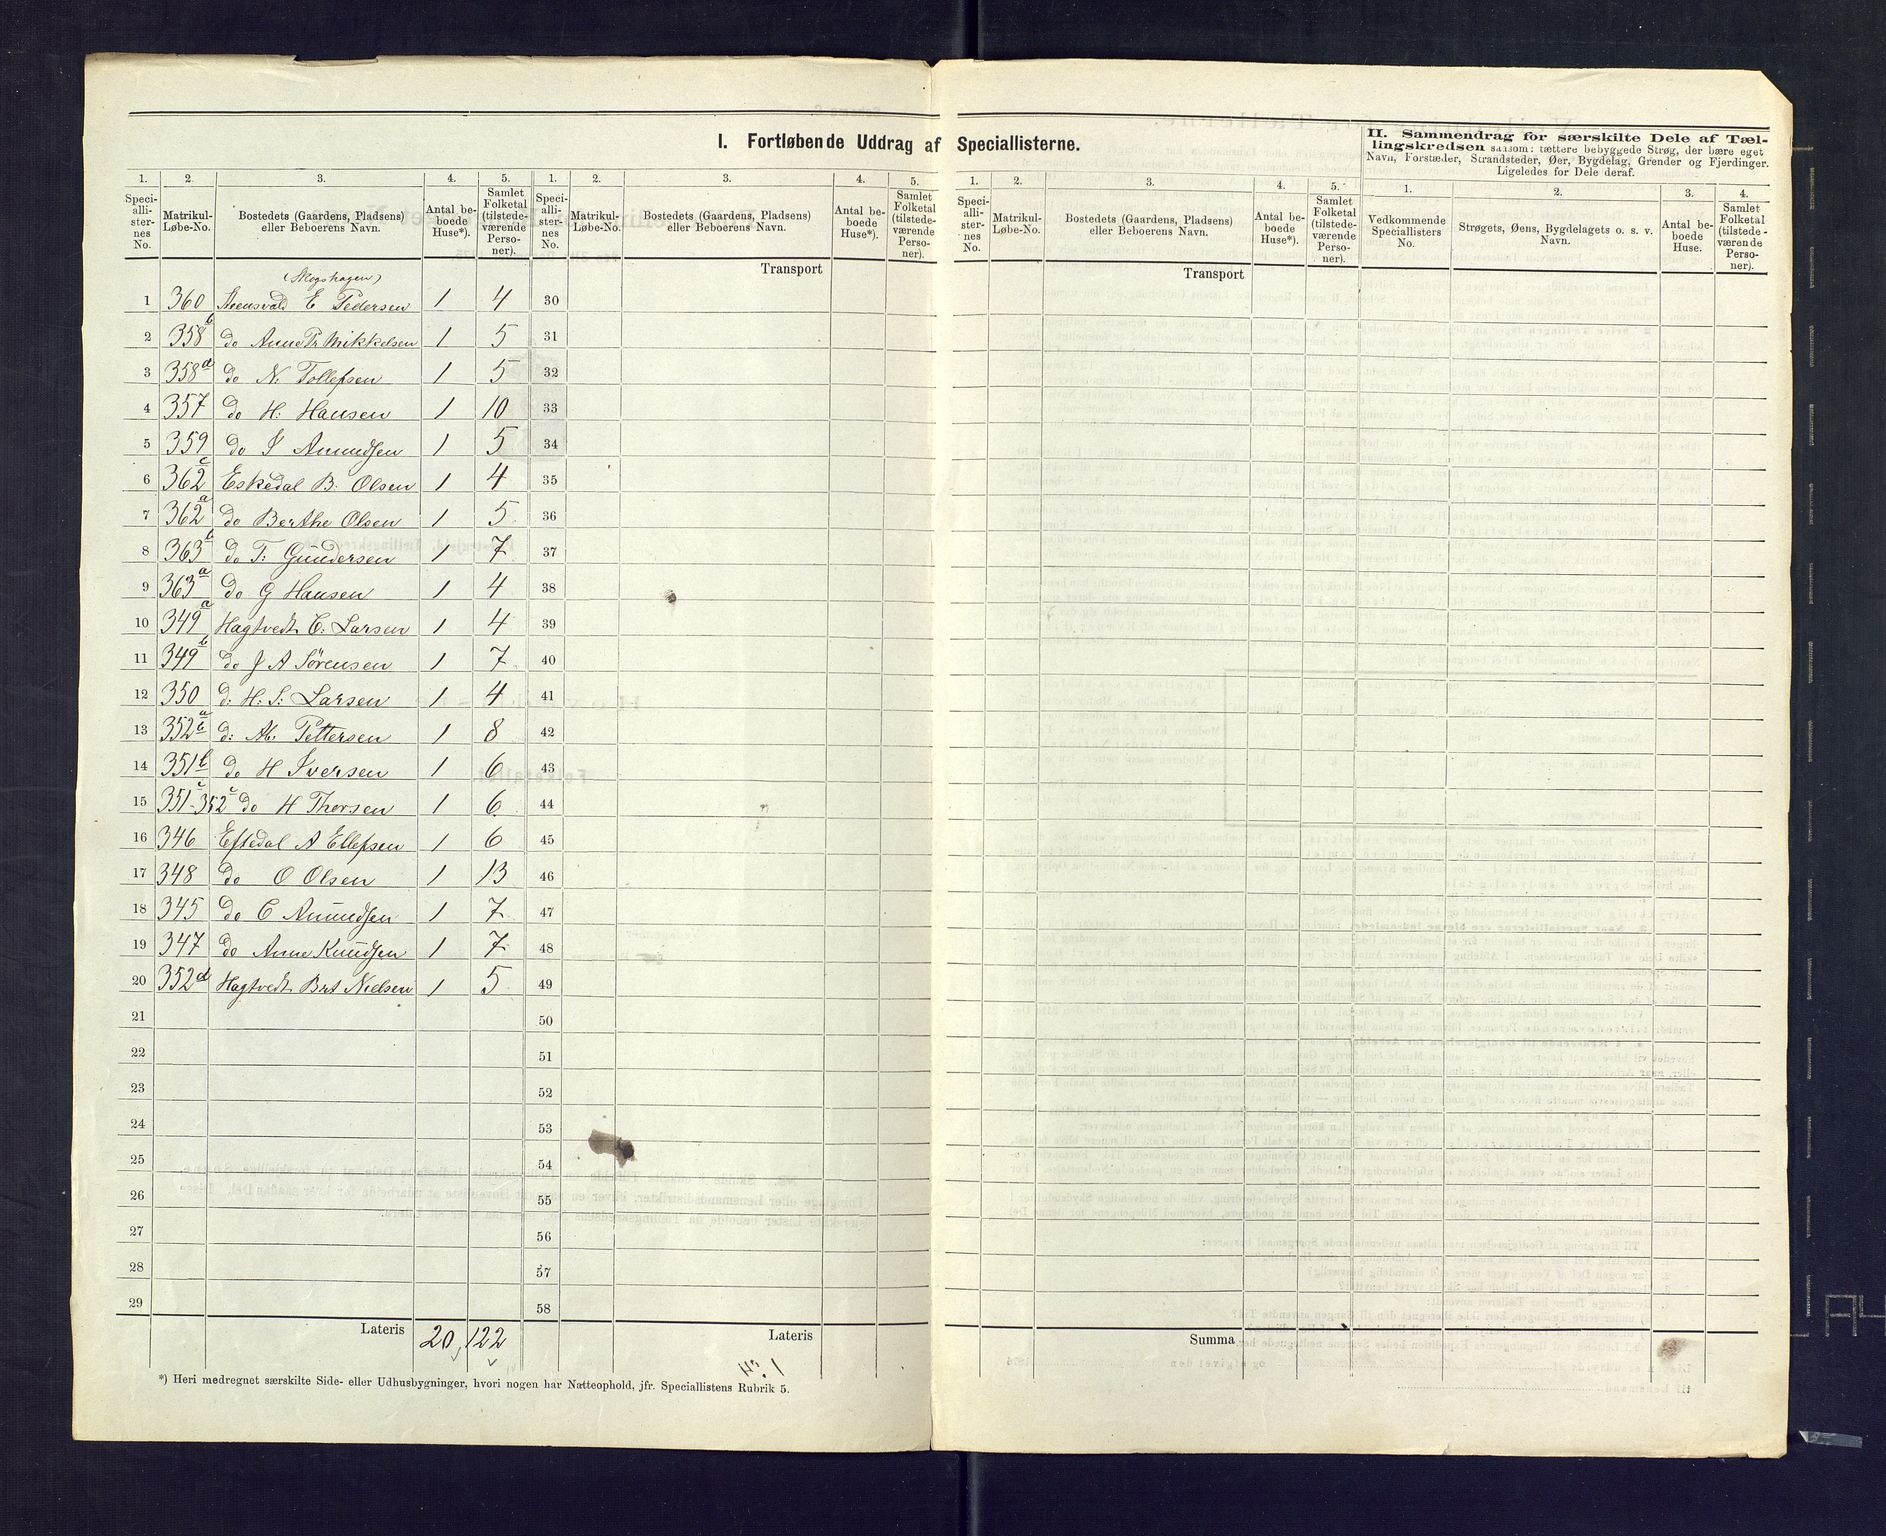 I. Fortløbende Uddrag af Speciallisterne.
II. Sammendrag for særskilte Dele af Tæl-
lingskredsen saasom: tættere bebyggede Strøg, der bære eget
Navn, Forstæder, Strandsteder, Øer, Bygdelag, Grender og Fjerdinger.
Ligeledes for Dele deraf.
1. 2. 3. 4. 5. 1. 2. 3. 4. 5. 1. 2. 3. 4. 5. 1. 2. 3. 4.
Speciallisternes No. Matrikul-Løbe-No. Bostedets (Gaardens, Pladsens) eller Beboerens Navn. Antal beboede Huse*). Samlet Folketal (tilstedeværende Personer).
Speciallisternes No. Matrikul-Løbe-No. Bostedets (Gaardens, Pladsens) eller Beboerens Navn. Antal beboede Huse*). Samlet Folketal (tilstedeværende Personer).
Speciallisternes No. Matrikul-Løbe-No. Bostedets (Gaardens, Pladsens) eller Beboerens Navn. Antal beboede Huse*). Samlet Folketal (tilstedeværende Personer).
Vedkommende Speciallisters No. Strøgets, Øens, Bygdelagets o. s. v. Navn. Antal beboede Huse. Samlet Folketal (tilstedeværende Personer).
Transport Transport
(Skogshagen)
1 360 E Pedersen 1 4 30
2 358b do Anne Pr Mikkelsen 1 5 31
3 358a do N. Tollefsen 1 5 32
4 357 do H. Hansen 1 10 33
5 359 do S Amundsen 1 5 34
6 362c Eskedal B. Olsen 1 4 35
7 362a do Berthe Olsen 1 5 36
8 363b do T: Gundersen 1 7 37
9 363a do G Hansen 1 4 38
10 349a Hagtvedt C: Larsen 1 4 39
11 349b do J A Sørensen 1 7 40
12 350 d: H. S: Larsen 1 4 41
13 352 d: Ab: Pettersen 1 8 42
14 351b do H Iversen 1 6 43
15 351c-352c do H Thorsen 1 6 44
16 346 Eftedal A Ellefsen 1 6 45
17 348 do O Olsen 1 13 46
18 345 do C Amundsen 1 7 47
19 347 do Anne Knudsen 1 7 48
20 352d Hagtvedt Brt Nielsen 1 5 49
21 50
22 51
23 52
24 53
25 54
26 55
27 56
28 57
29 58
Lateris 20, 122 Lateris Summa
No. 1
*) Heri medregnet særskilte Side- eller Udhusbygninger, hvori nogen har Natteophold, jfr. Speciallistens Rubrik 5.